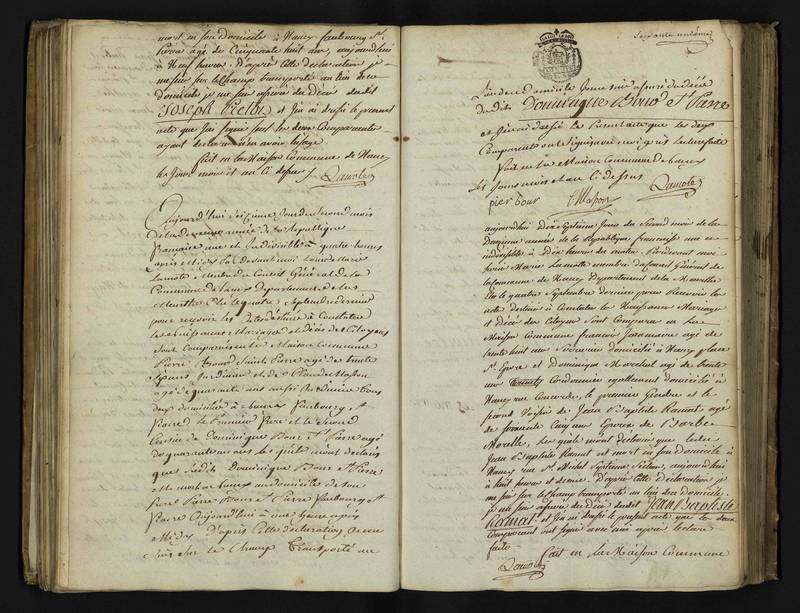 mort en son domicile à Nancy faubourg St
Pierre agé de Cinquante huit ans, aujourdhui
à Neuf heures. D'après cette declaration je
me suis sur le champ transporté au lieu de ce
domicile je me suis assuré du Décès dudit
Joseph et j'en ai dressé le présent
acte que j'ai signé seul les deux Comparants
ayant déclaré n'en avoir l'usage
Fait en la Maison Commune de Nancy
les Jours mois et an Ci dessus
Lamotte
Aujourd'hui Seizieme Jour du Second mois
de la année de la République
francaise une et Indivisible quatre heures
après Midy par devant moi Louis Marie
Lamotte Membre du Conseil Général de la
Commune de Nancy Departement de la
Meurthe Elu le quatre Septembre dernier
pour recevoir les Actes destinés à Constater
les naissances Mariages et Décès des Citoyens
Sont Comparus en la Maison Commune
Pierre Saint Pierre agé de trente
Jardinier et de Claude Masson
agé de quarante ans aussi Jardinier tous
deux domiciliés à Nancy faubourg St
Pierre le Premier frere et le Second
Cousin de Dominique Bour St Pierre agé
de quarante ans les quels mont declaré
que ledit Dominique Bour St Pierre
est mort à Nancy au domicile de son
frere Pierre Bour St Pierre faubourg St
Pierre Aujourd'hui à une heure après
Midy D'après Cette declaration je me
Suis Sur le Champ Transporté au
lieu de ce domicile Je me suis assuré du décès
dudit Dominique Bour St Pierre
et j'en ai dressé le Present acte que les deux
Comparants ont Signé avec moi après lecture faite
Fait en la Maison Commune de Nancy
les Jours mois et an Ci dessus
Lamotte
pier bour C Masson
aujourdhui Dix Septieme Jour du Second mois de la
année de la République francaise une et
indivisible à Dix heures du matin. Pardevant moi
Louis Marie Lamotte membre du Conseil Général de
la Commune de Nancy Departement de la Meurthe
Elu le quatre Septembre dernier pour Recevoir les
actes destinés à Constater les Naissances Mariages
et Décès des Citoyens Sont Comparus en la
Maison Commune francois agé de
trente huit ans domicilié à Nancy place
St Epvre et Dominique Marchal agé de trente
ans Cordonnier egallement domicilié à
Nancy rue Concorde, le premier Gendre et le
second Voisin de Jean Baptiste Ramat agé
de soixante Cinq ans Epoux de Barbe
Morelle, les quels mont declaré que ledit
Jean Baptiste Ramat est mort en son domicile à
Nancy rue St Michel Septieme Section, aujourdhui
à huit heures et demie. D'après cette declaration je
me suis sur le champ transporté au lieu du domicile
je me suis assuré du Décès dudit Jean Baptiste
Ramat et j'en ai dressé le présent acte que les deux
comparants ont signé avec moi après lecture
faite
Fait en la Maison Commune
Lamotte